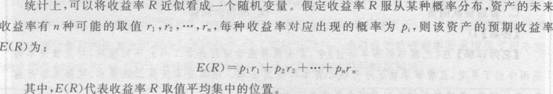 统计上,可以将收益率 R 近似看成一个随机变量。假定收益率 R 服从某种概率分布,资产的未来
收益率有 n 种可能的取值 r₁,r₂,…,rₙ,每种收益率对应出现的概率为 pᵢ,则该资产的预期收益率
E(R)为:
E(R)=p₁r₁+p₂r₂+…+pₙrₙ
其中,E(R)代表收益率 R 取值平均集中的位置。